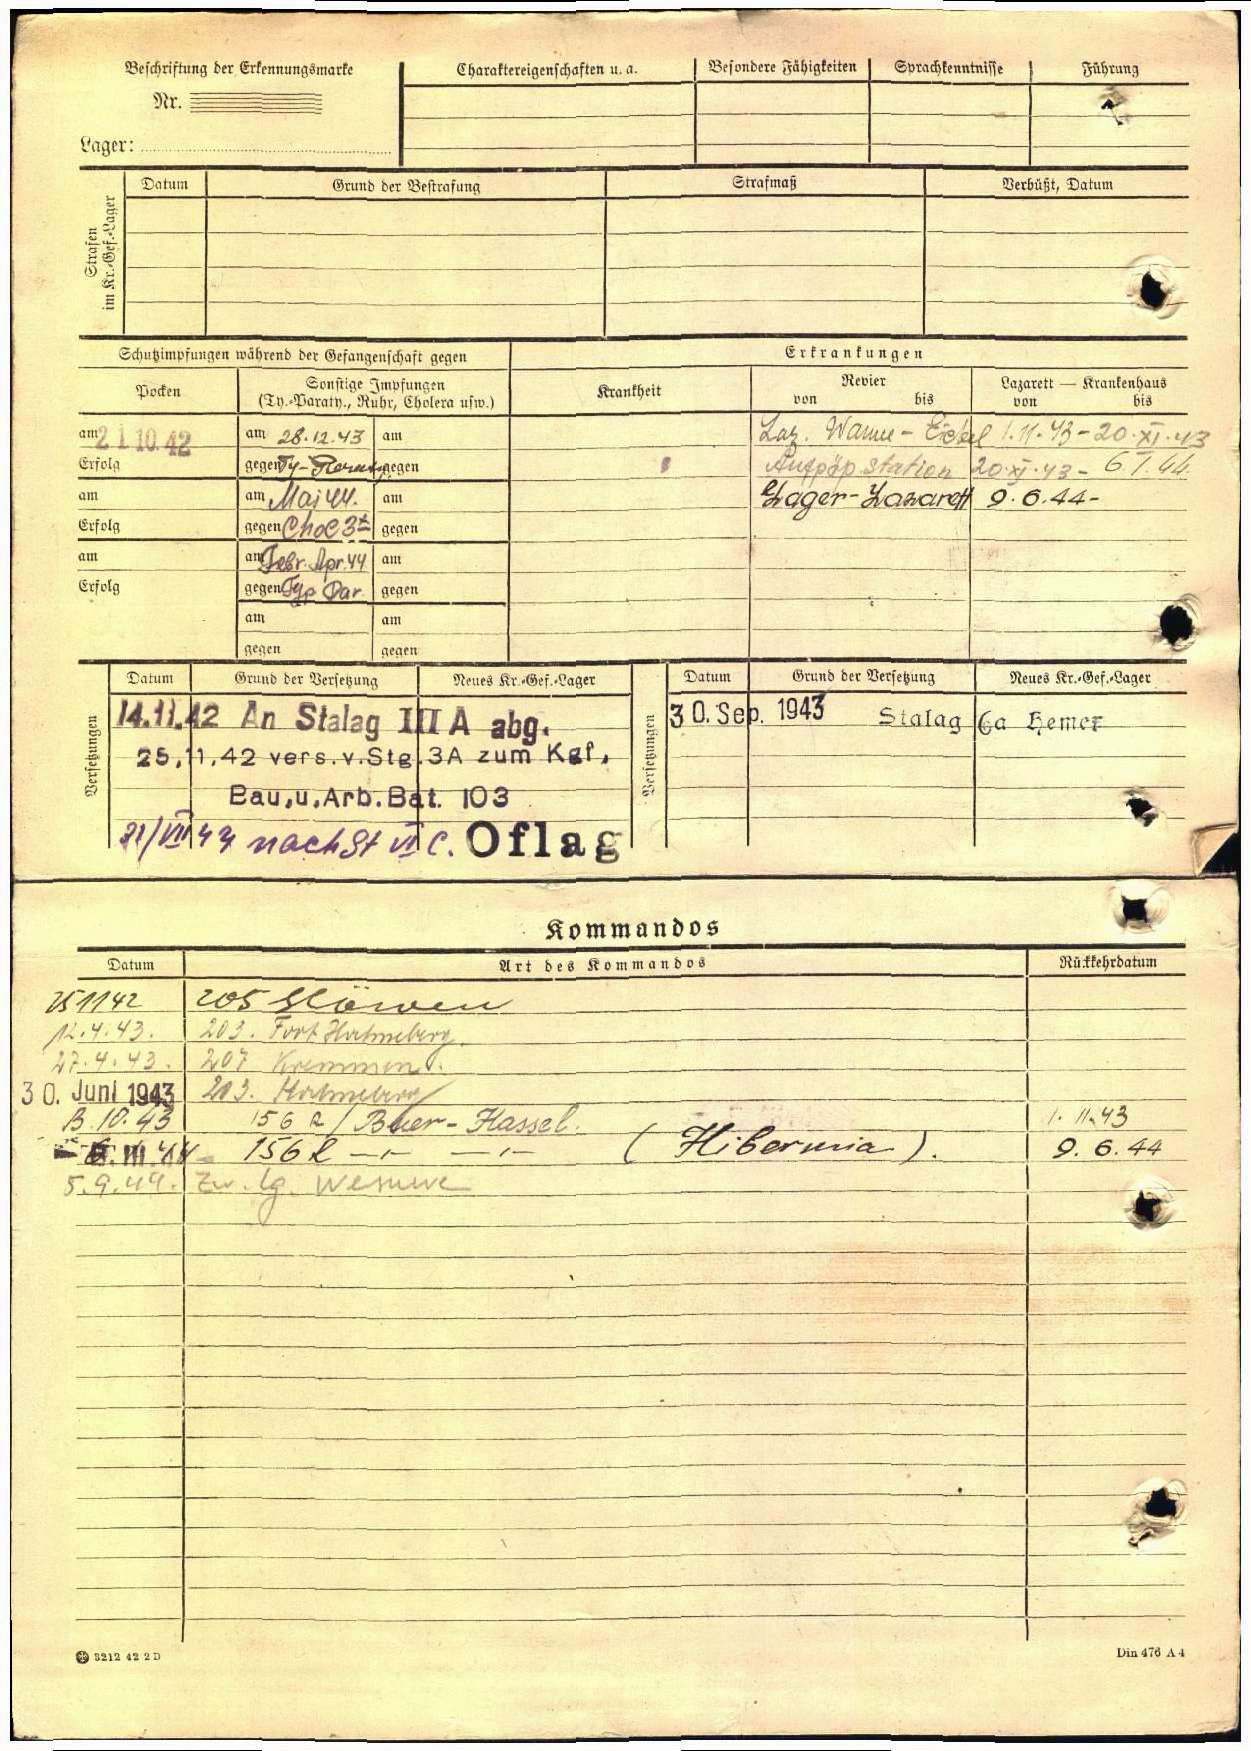 Beschriftung der Erkennungsmarke
Nr.
Lager:
Charaktereigenschaften u. a.
Besondere Fähigkeiten
Sprachkenntnisse
Führung
Strafen im Kr.-Gef.-Lager
Datum
Grund der Bestrafung
Strafmaß
Verbüßt, Datum
Schutzimpfungen während der Gefangenschaft gegen
Erkrankungen
Pocken
Sonstige Impfungen
(Ty.-Paraty., Ruhr, Cholera usw.)
Krankheit
Revier
von bis
Lazarett — Krankenhaus
von bis
am 21.10.42
am 28.12.43
am
Laz. Wanne-Eickel 1.11.43-20.XI.43
Erfolg
gegen Ty-
gegen
Aufpäp.station 20.XI.43- 6.I.44
am
am Mai 44.
am
Lager-Lazarett 9.6.44-
Erfolg
gegen Chol 3x
gegen
am
am Febr. Apr. 44
am
Erfolg
gegen Typ Par
gegen
am
am
gegen
gegen
Versetzungen
Datum
Grund der Versetzung
Neues Kr.-Gef.-Lager
14.11.42 An Stalag III A abg.
25.11.42 vers.v.Stg.3A zum Kgf.
Bau.u.Arb.Bat. 103
21/VII 43 nach St VI C. Oflag
Versetzungen
Datum
Grund der Versetzung
Neues Kr.-Gef.-Lager
30. Sep. 1943 Stalag 6a Hemer
Kommandos
Datum
Art des Kommandos
Rückkehrdatum
251142 205 Slöwen
12.4.43. 203. Fort Hahneberg.
27.4.43. 207 Kremmen.
30. Juni 1943 203. Hahneberg
13.10.43 156 R / Buer-Hassel. 1.11.43
44 156 R -"- -"- (Hibernia). 9.6.44
5.9.44. Zw. lg.
3212 42 2 D
Din 476 A 4